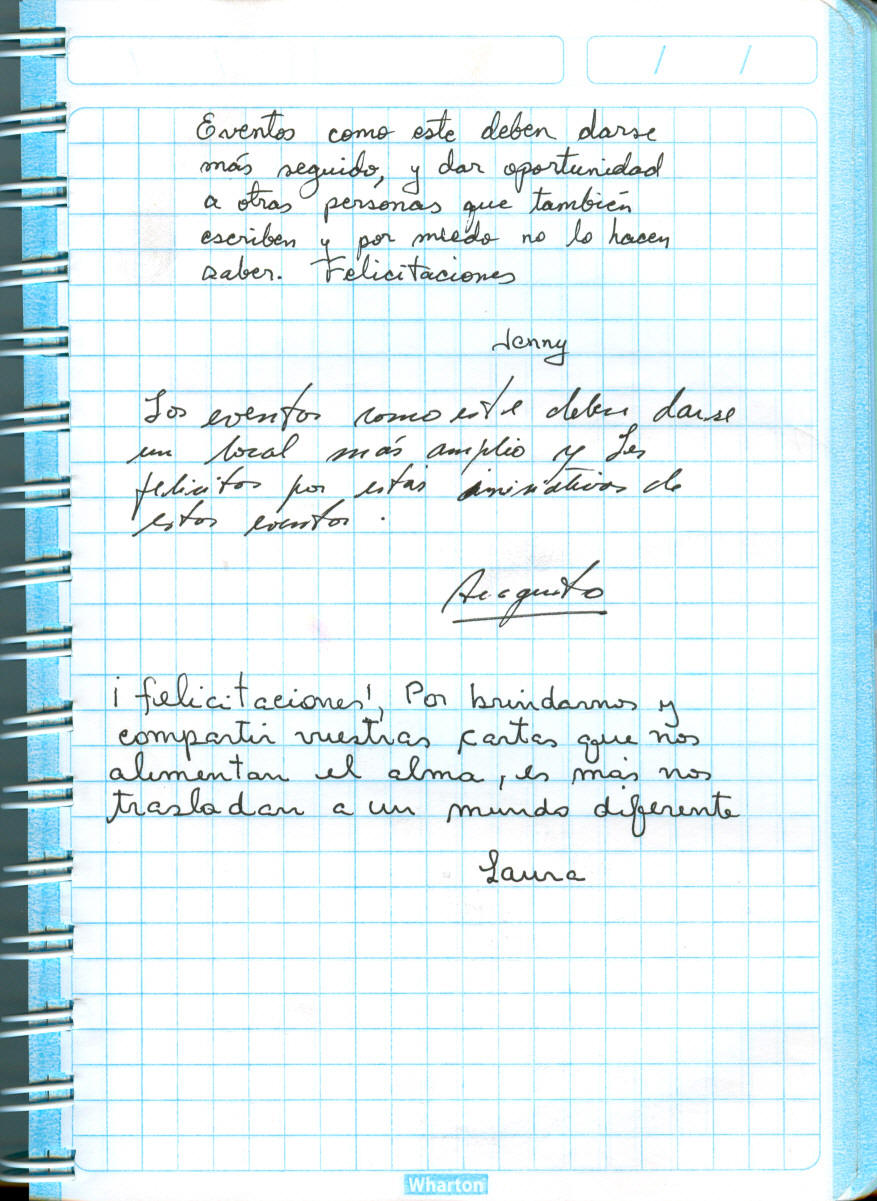 / /
Eventos como este deben darse
más seguido, y dar oportunidad
a otras personas que también
escriben y por miedo no lo hacen
saber. Felicitaciones
Jenny
Los eventos como este deben darse
un local más amplio y les
felicitos por estas inisiativas de
estos eventos.
¡felicitaciones!, Por brindarnos y
compartir vuestras cartas que nos
alimentan el alma, es más nos
trasladan a un mundo diferente
Laura
Wharton